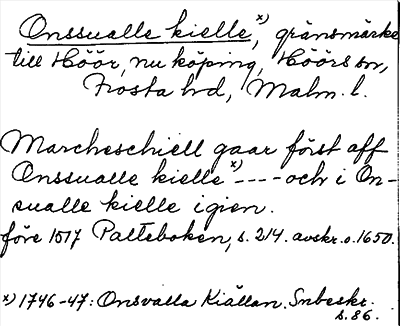 Onssualle kielle,ˣ⁾ gränsmärke
till Höör, nu köping, Höörs sn,
Frosta hd, Malm. l.
Marcheschiell gaar först aff
Onssualle kielleˣ⁾----och i On-
sualle kielle igien.
före 1517 Palteboken, s. 214. avskr. o. 1650.
x) 1746-47: Onsvalla Kiällan. Snbeskr.
s. 86.